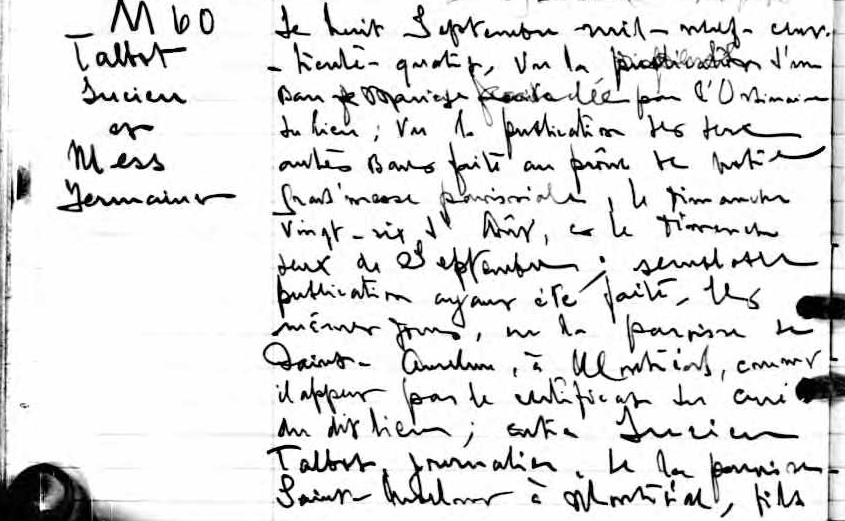 M 60
Talbot
Lucien
et
Mess
Germaine
Le huit Septembre mil-neuf-cent-
-trente-quatre, Vu la d'un
Ban de Mariage accordée par l'Ordinaire
du lieu ; Vu la publication des deux
autres Bans faite au prône de notre
Grand'messe paroissiale, le dimanche
Vingt-six d'Août, et le dimanche
deux de Septembre ; semblable
publication ayant été faite, les
mêmes jours, en la paroisse de
Saint-Anselme, à Montréal, comme
il appert par le certificat du curé
du dit lieu ; entre Lucien
Talbot, journalier, de la paroisse
Saint-Anselme à Montréal, fils